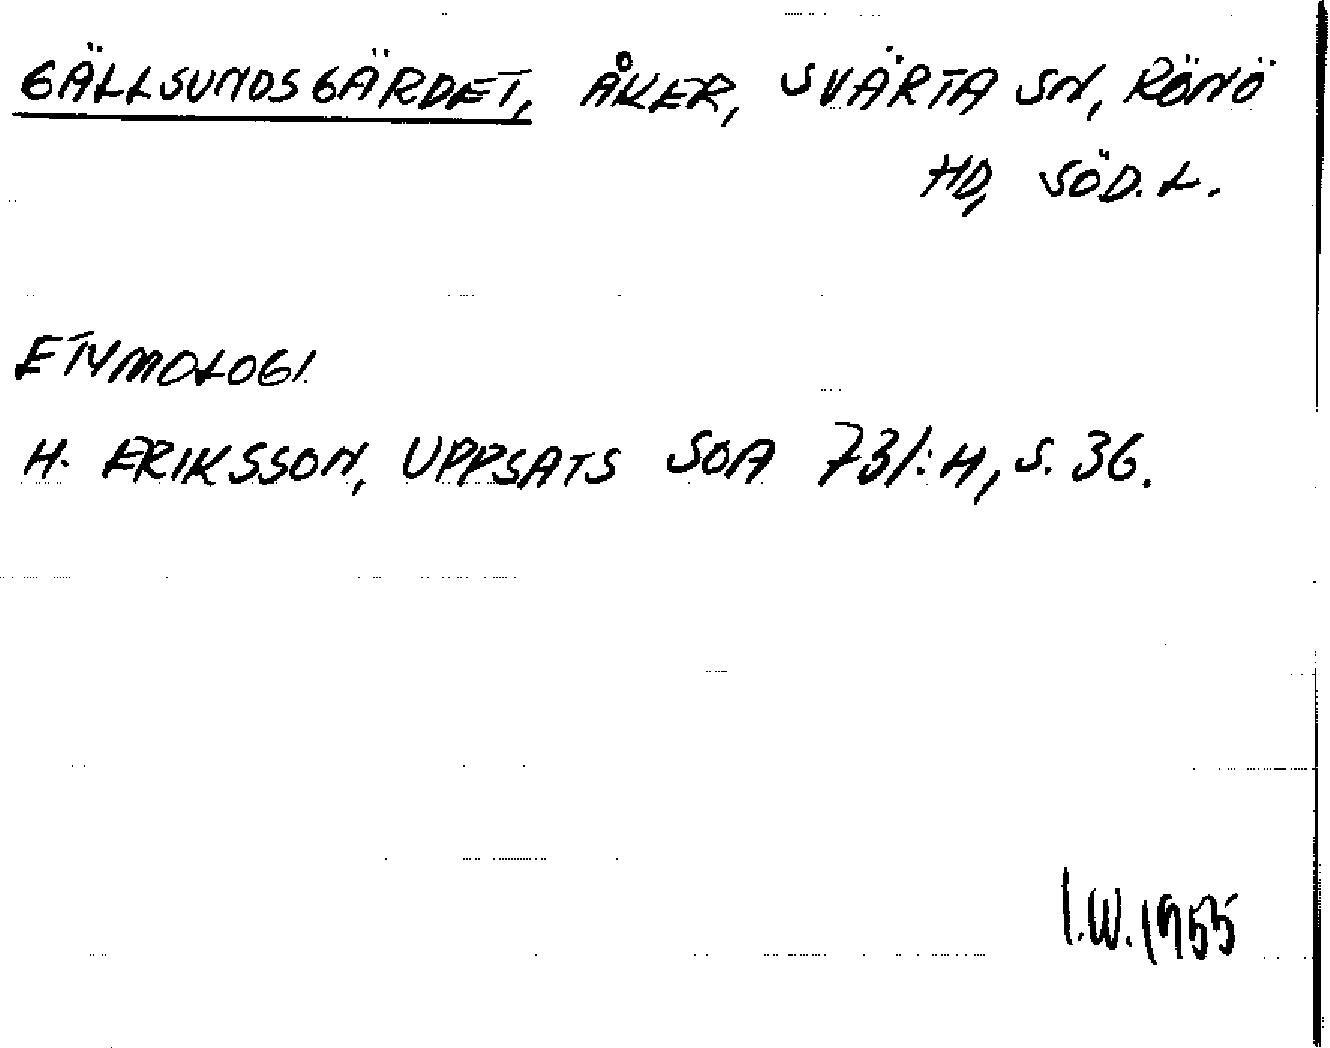 GÄLLSUNDSGÄRDET, ÅKER, SVÄRTA SN, RÖNÖ
HD, SÖD. L.
ETYMOLOGI.
H. ERIKSSON, UPPSATS SOA 731:H, S. 36.
I.W. 1955